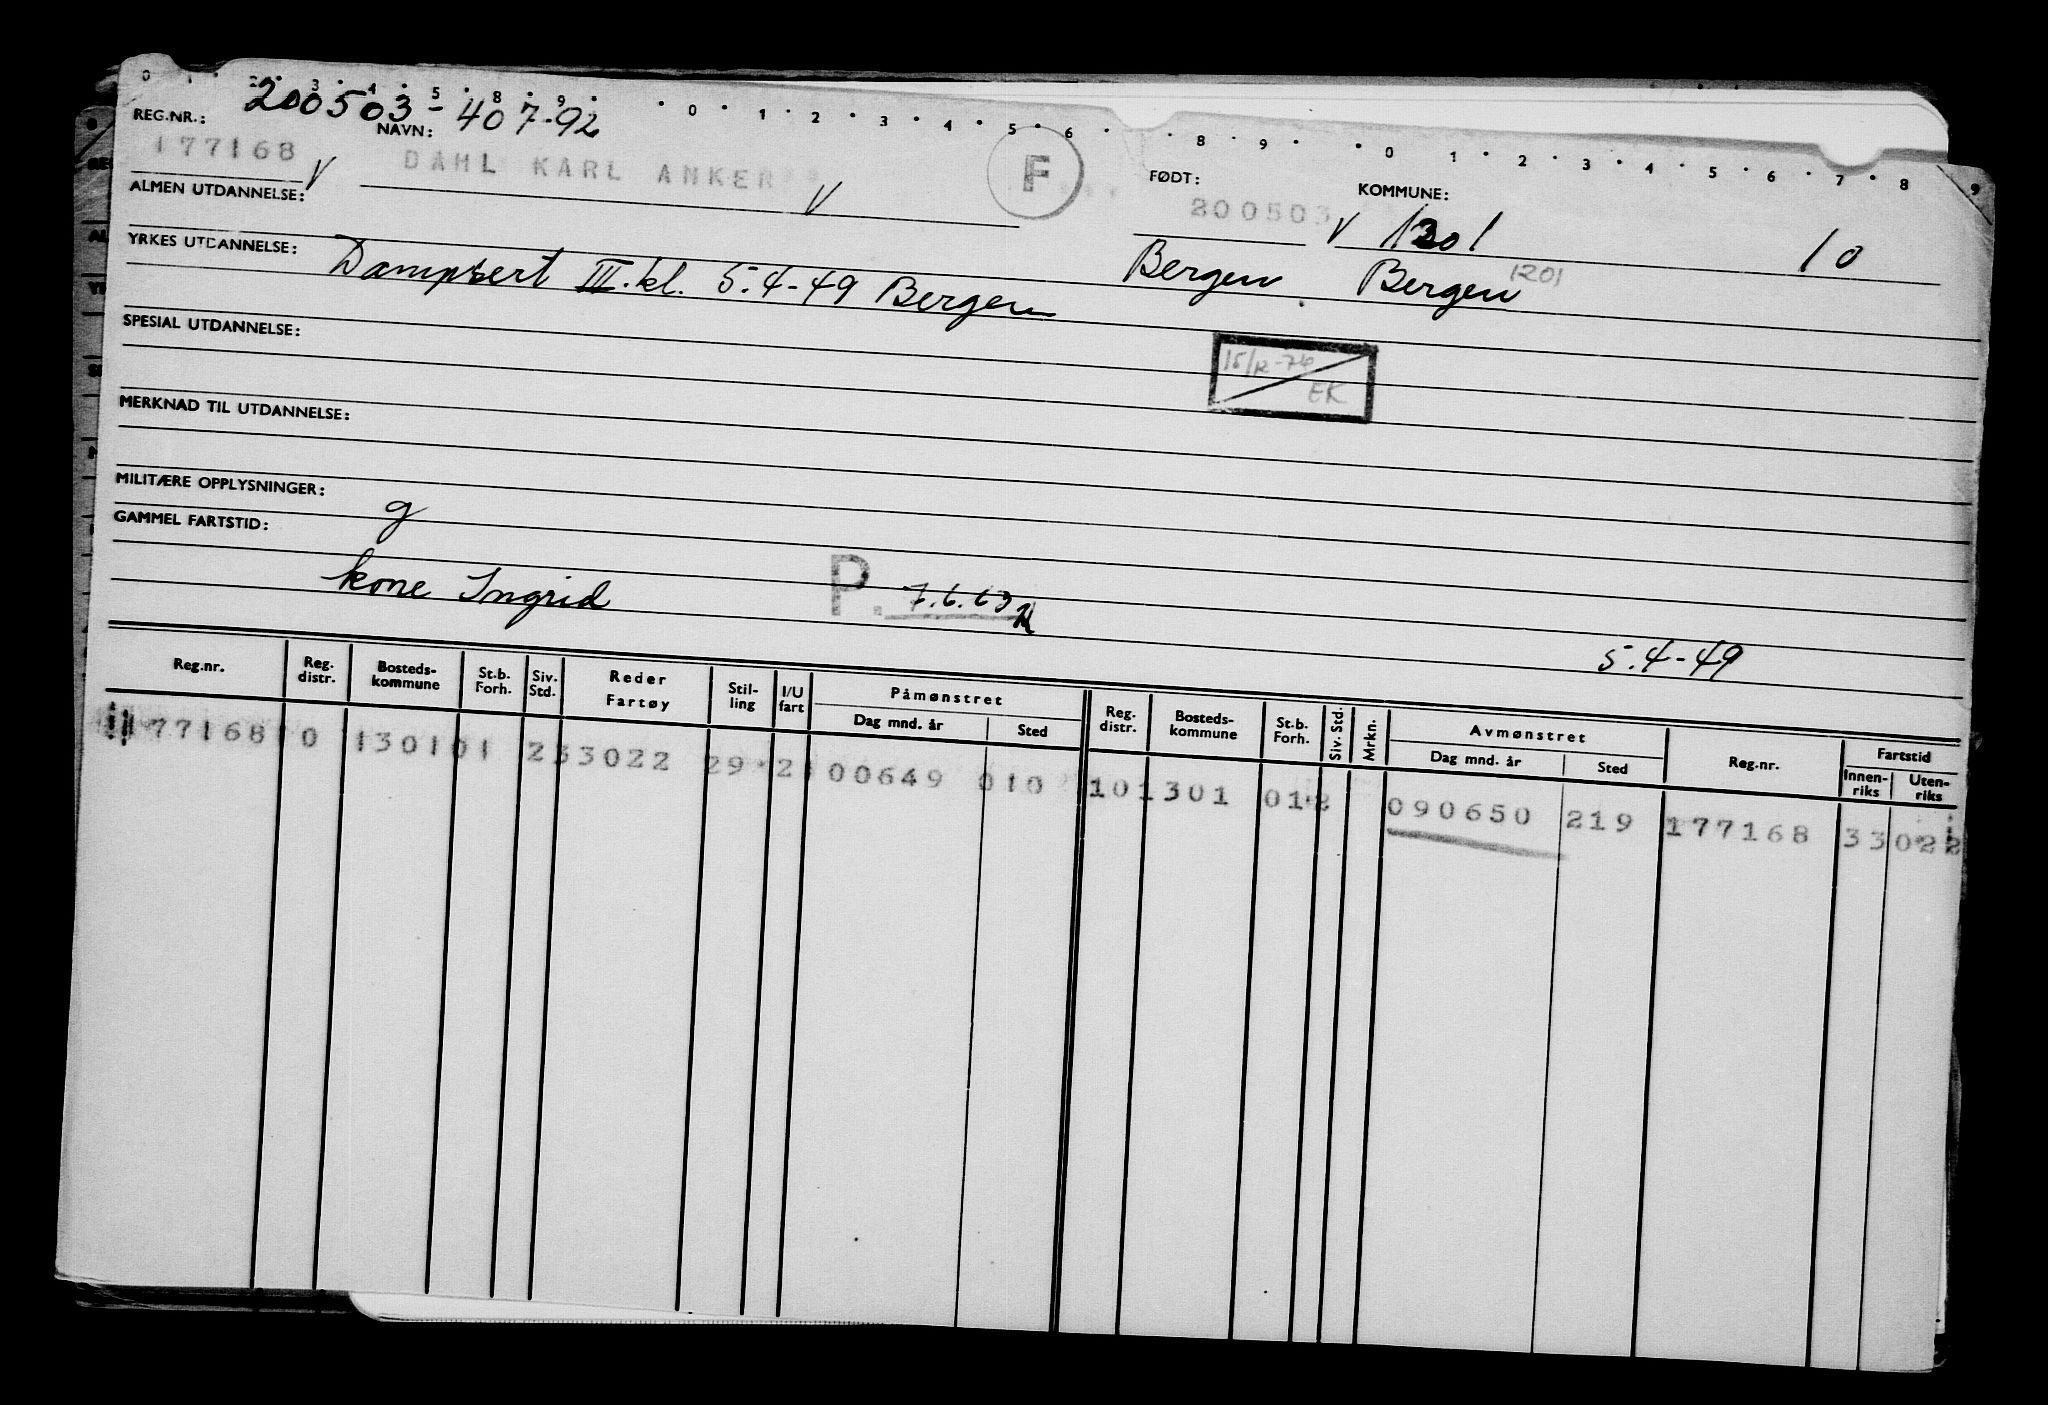 200503-407-92
REG.NR.: NAVN: FØDT: KOMMUNE:
177168 V DAHL KARL ANKER V F 200503 V 1301 10
ALMEN UTDANNELSE:
Bergen Bergen 1201
YRKES UTDANNELSE: Dampsert III.kl. 5.4-49 Bergen
SPESIAL UTDANNELSE:
EK
MERKNAD TIL UTDANNELSE:
MILITÆRE OPPLYSNINGER: g
GAMMEL FARTSTID:
kone Ingrid P. 7.6.63
5.4-49
Reg.nr. Reg. distr. Bosteds-kommune St.b. Forh. Siv. Std. Reder Fartøy Stil-ling I/U fart Påmønstret Dag mnd. år Sted Reg. distr. Bosteds-kommune St.b. Forh. Siv. Std. Mrkn. Avmønstret Dag mnd. år Sted Reg.nr. Fartstid Innen-riks Uten-riks
177168 0 1301 01 2 33022 29 2 00649 010 10 1301 01 2 090650 219 177168 33022